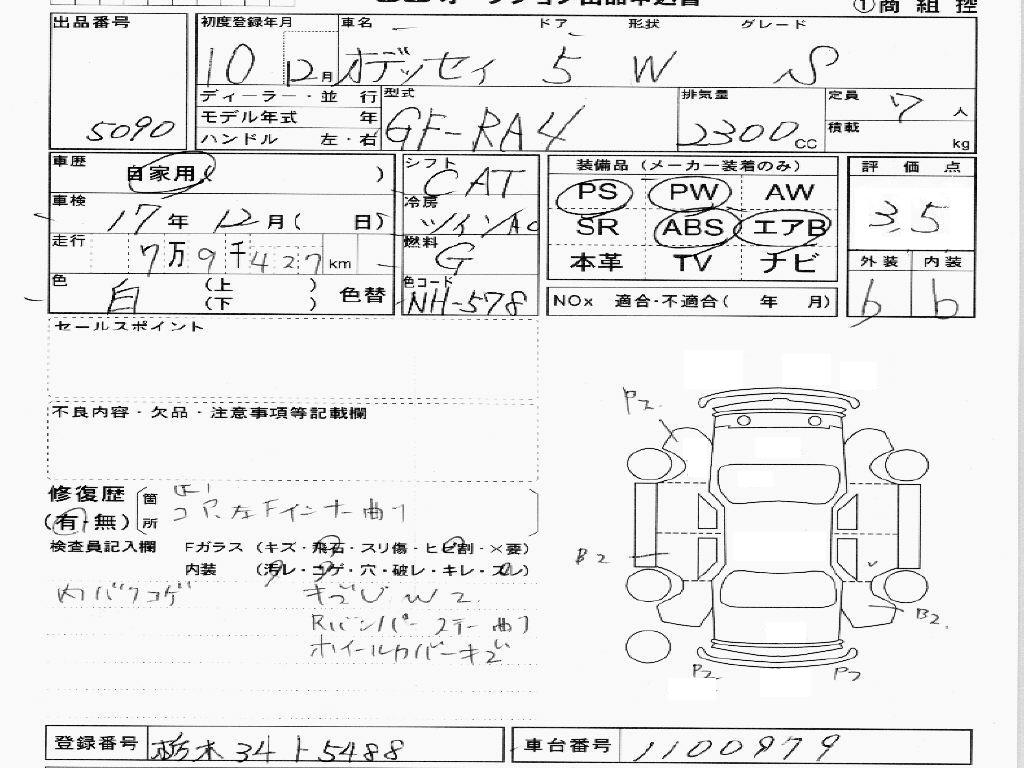 ①商 組 控
出品番号 5090
初度登録年月 車名 ドア 形状 グレード
10 12月 オデッセイ 5 W S
ディーラー・並 行
モデル年式 年
ハンドル 左・右
型式 GF-RA4
排気量 2300cc
定員 7人
積載 kg
車歴 自家用( )
車検 17年 12月( 日)
走行 7万9千427km
色 白 (上 ) (下 ) 色替
シフト CAT
冷房 ツインAC
燃料 G
色コード NH-578
装備品 (メーカー装着のみ)
PS PW AW
SR ABS エアB
本革 TV ナビ
NOx 適合・不適合( 年 月)
評 価 点
3.5
外装 内装
b b
セールスポイント
不良内容・欠品・注意事項等記載欄
修復歴 (有・無) 箇所
コア、左Fインナー曲り
検査員記入欄 Fガラス (キズ・飛石・スリ傷・ヒビ割・×要)
内装 (汚レ・コゲ・穴・破レ・キレ・ズレ)
キズ W2
Rバンパーステー曲り
ホイールカバーキズ
P2
B2
B2
P2 P2
登録番号 栃木34ト5488
車台番号 1100979